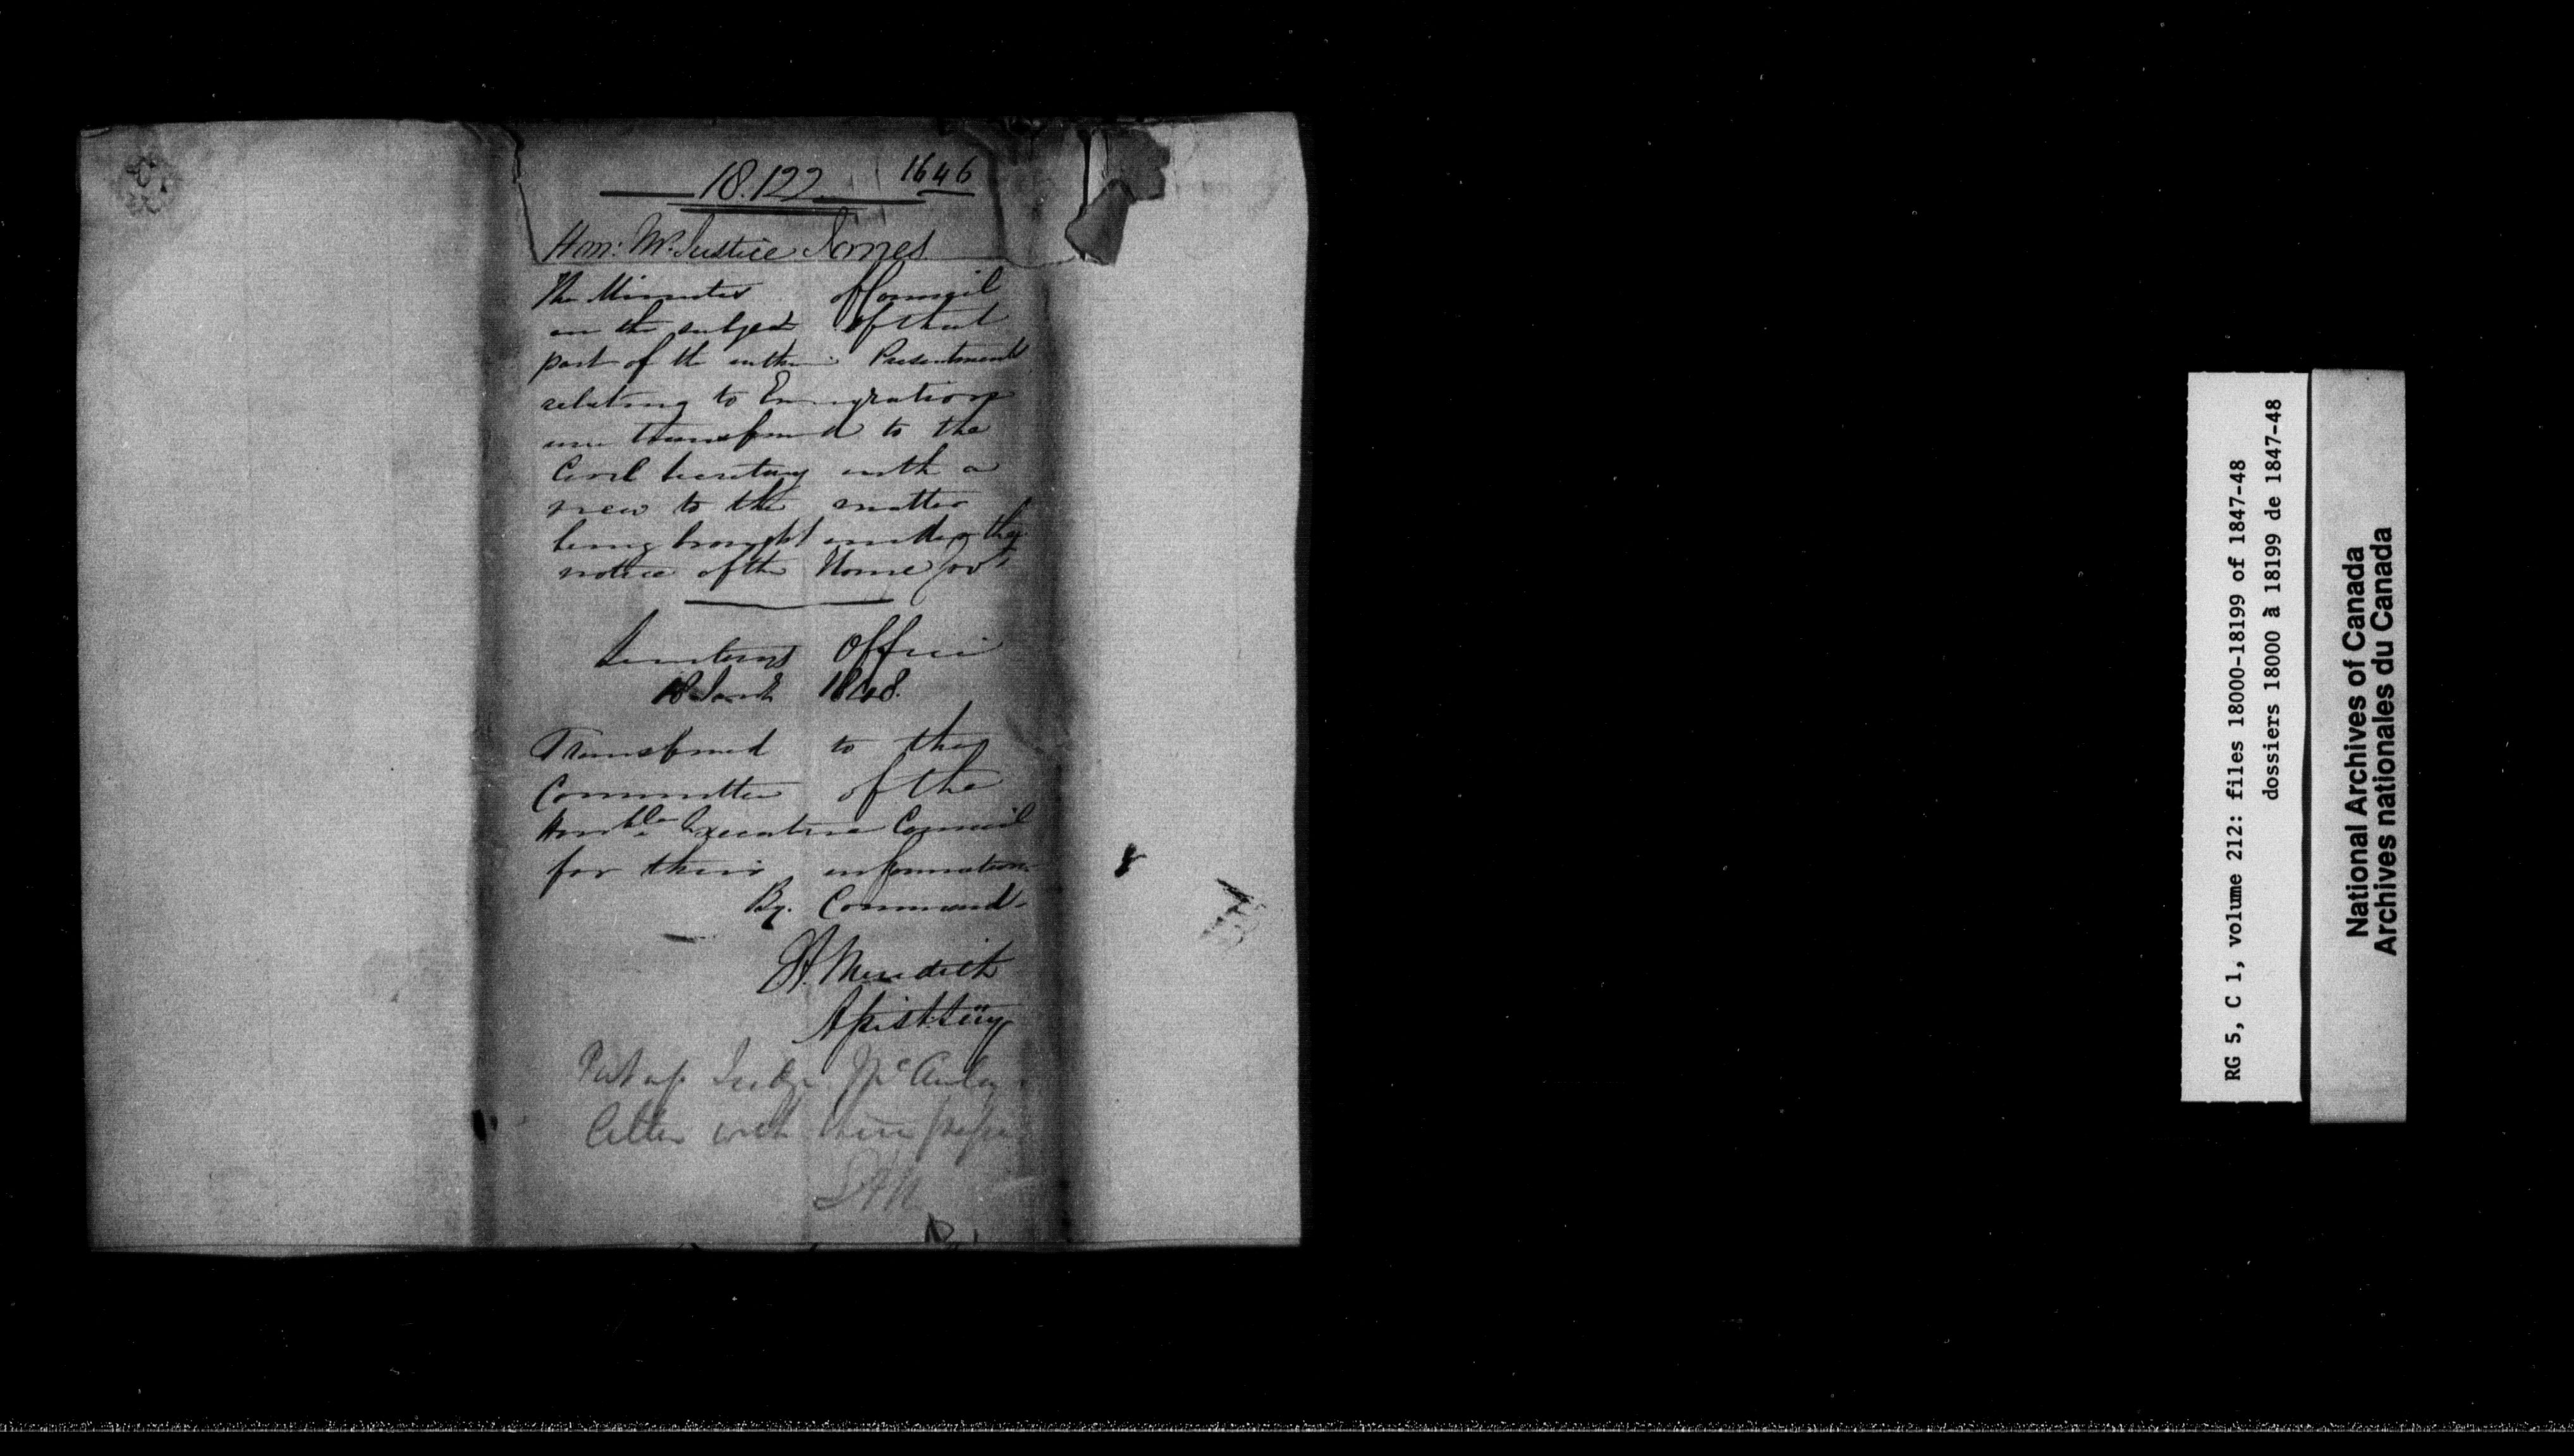 18.122 1646
Hon: Mr. Justice Jones
The Minutes of Council
on the subject of that
part of the within Presentment
relating to Emigration
were transferred to the
Civil Secretary with a
view to the matter
being brought under the
notice of the Home Govt
Secretary's Office
18 Jany 1848.
Transferred to the
Committee of the
Honble Executive Council
for their information
By Command.
Meredith
Assist Secy
Put up Judge McAulay
letter with these papers
RG 5, C 1, volume 212: files 18000-18199 of 1847-48
dossiers 18000 à 18199 de 1847-48
National Archives of Canada
Archives nationales du Canada